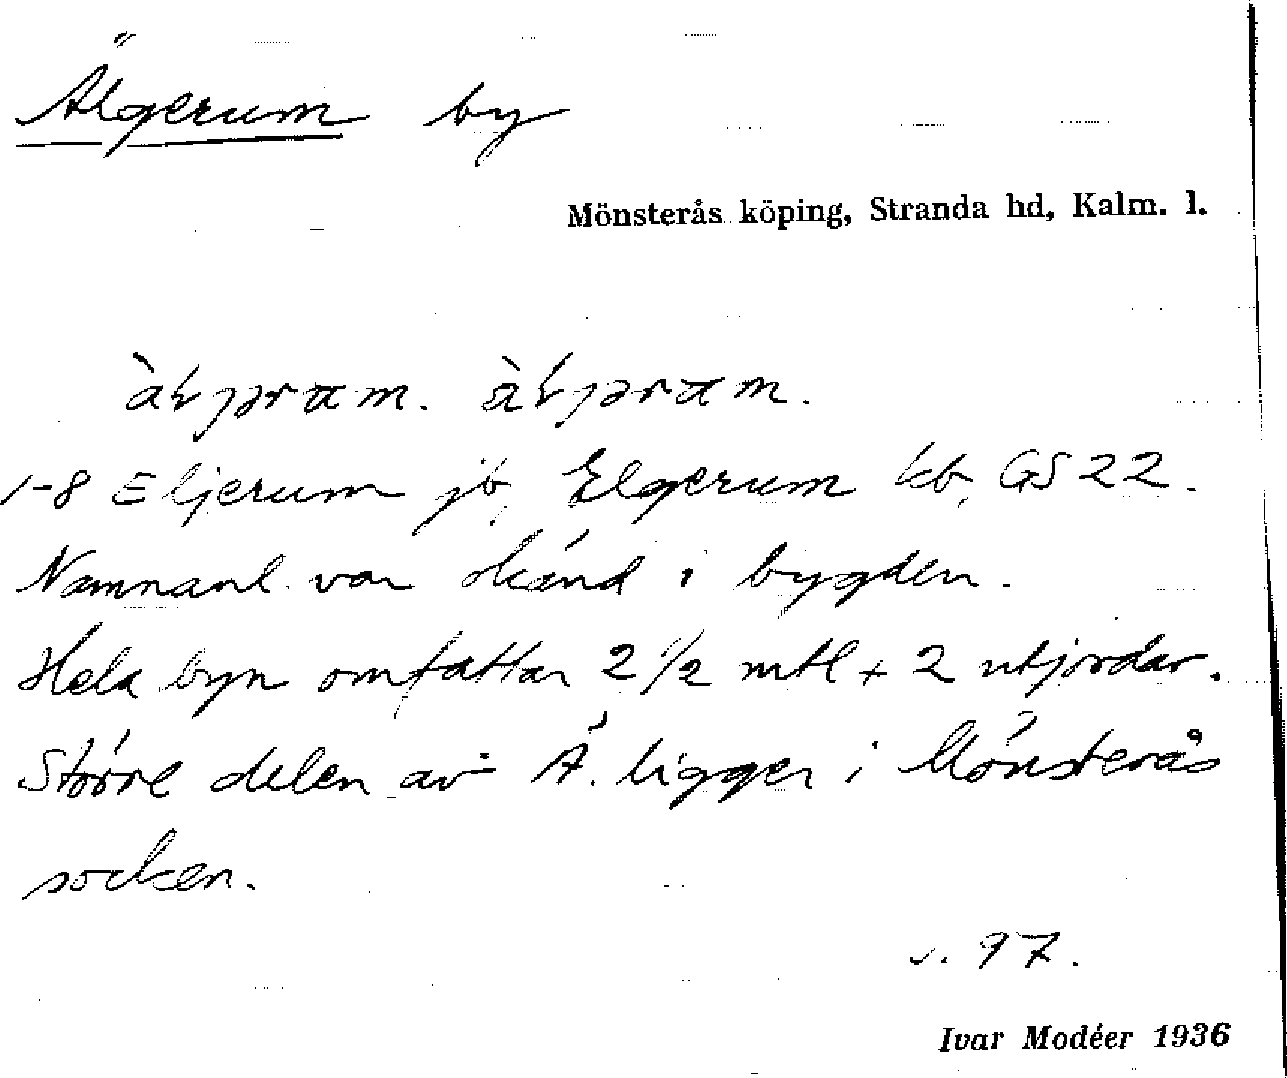 Älgerum by
Mönsterås köping, Stranda hd, Kalm. l.
1-8 Eljerum jb, Elgerum kb, GS 22.
Namnanl. var okänd i bygden.
Hela byn omfattar 2 1/2 mtl + 2 utjordar.
Större delen av Ä. ligger i Mönsterås
socken.
s. 97.
Ivar Modéer 1936